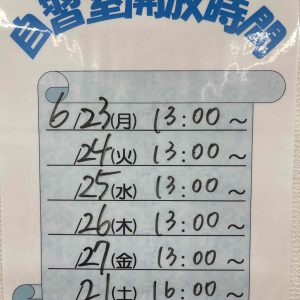 自習室開放時間
6/23(月) 13:00～
/24(火) 13:00～
/25(水) 13:00～
/26(木) 13:00～
/27(金) 13:00～
/21(土) 16:00～